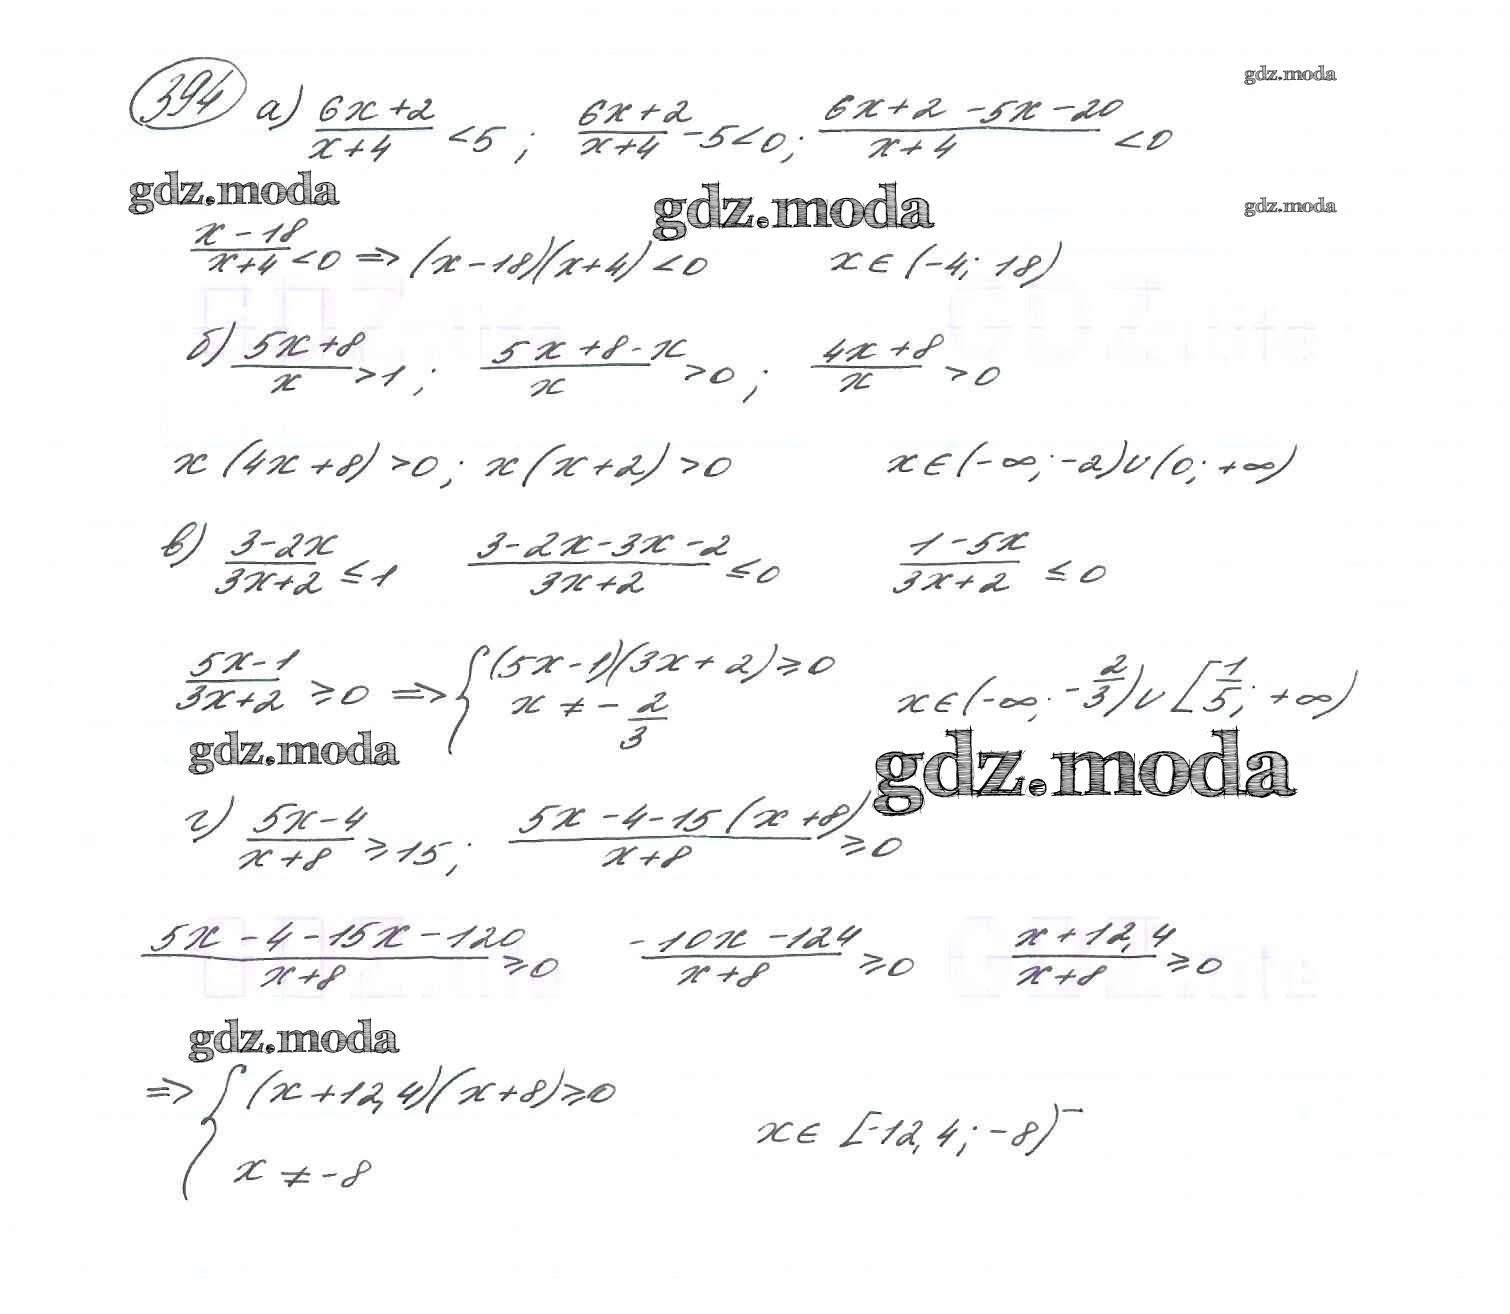 394 а) (6x+2)/(x+4) <5 ; (6x+2)/(x+4) -5<0; (6x+2-5x-20)/(x+4) <0
gdz.moda
gdz.moda
gdz.moda
gdz.moda
(x-18)/(x+4) <0 => (x-18)(x+4)<0 x∈(-4; 18)
б) (5x+8)/x >1 ; (5x+8-x)/x >0 ; (4x+8)/x >0
x(4x+8)>0; x(x+2)>0 x∈(-∞;-2)∪(0;+∞)
в) (3-2x)/(3x+2) ≤1 (3-2x-3x-2)/(3x+2) ≤0 (1-5x)/(3x+2) ≤0
(5x-1)/(3x+2) ≥0 => { (5x-1)(3x+2)≥0 x∈(-∞; -2/3)∪[1/5; +∞)
x ≠ -2/3
gdz.moda
gdz.moda
г) (5x-4)/(x+8) ≥15; (5x-4-15(x+8))/(x+8) ≥0
(5x-4-15x-120)/(x+8) ≥0 (-10x-124)/(x+8) ≥0 (x+12,4)/(x+8) ≥0
gdz.moda
=> { (x+12,4)(x+8)≥0
x ≠ -8 x∈ [-12,4; -8)